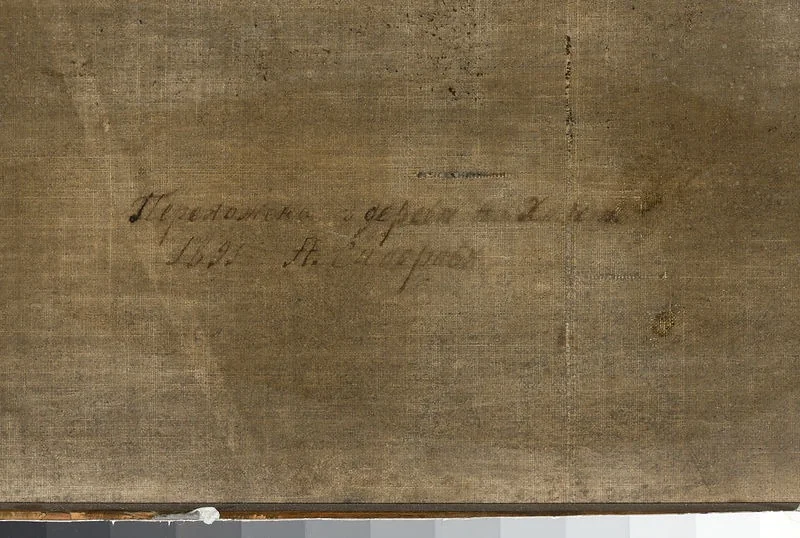 Переложена съ дерева на Холстъ
А. Сидоровъ